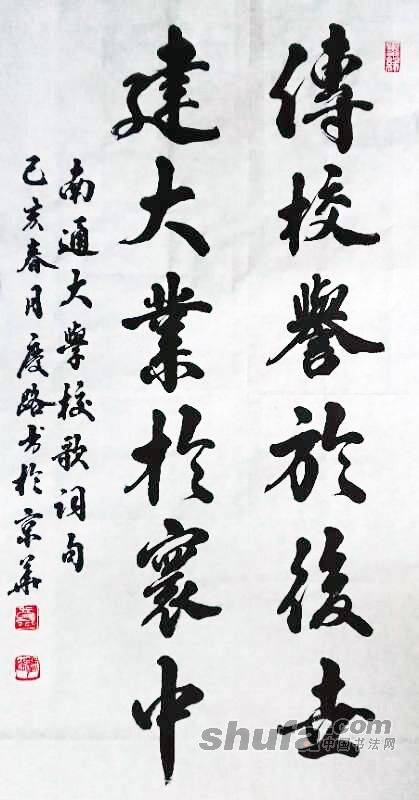 傳校譽於後世
建大業於寰中
南通大學校歌詞句
己亥春月慶路书於京華
shufa.com
中国书法网